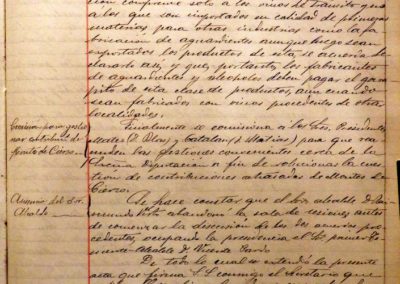 ción conforme solo a los vinos de tránsito y no
a los que son importados en calidad de primeras
materias para otras industrias como la fa-
bricación de aguardientes aunque luego sean
exportados los productos de esta, se acuerda de-
clararlo así y que, por tanto, los fabricantes
de aguardientes y alcoholes deben pagar el
de esta clase de productos, aun cuando
sean fabricados con vinos procedentes de otras
localidades.
Comisión para gestio-
nar
Finalmente se comisiona a los Sres. Presidente,
y Catalan (D. Matias) para que va-
las gestiones convenientes cerca de la
Diputación a fin de solucionar la cues-
tión de contribuciones atrasadas de Montes de
Cierzo.
Ausencia del Sr.
Alcalde
Se hace constar que el Sr. alcalde D. Rai-
mundo abandonó la sala de sesiones antes
de comenzar la discusión de los dos acuerdos pre-
cedentes, ocupando la presidencia el Sr. primer te-
niente alcalde D. Vicente
De todo lo cual se extendió la presente
acta que firma S.S. conmigo el Secretario que